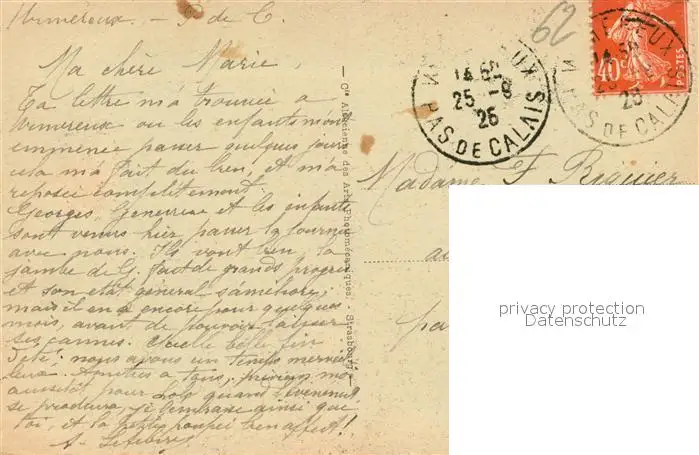 Wimereux. - P. de C.
Ma chère Marie,
Ta lettre m'a trouvée à
Wimereux où les enfants m'ont
emmenée passer quelques jours
cela m'a fait du bien, et m'a
reposée complètement.
Georges, Geneviève et les enfants
sont venus hier passer la journée
avec nous. Ils vont bien, la
jambe de G. fait de grands progrès
et son état général s'améliore,
mais il en a encore pour quelques
mois, avant de pouvoir laisser
ses cannes. Quelle belle fin
d'été! nous avons un temps merveil
leux. Amitiés à tous, préviens moi
aussitôt pour Lola quand l'événement
se produira, je t'embrasse ainsi que
toi, et la petite poupée bien affect!
A. Lefebvre
Cie Alsacienne des Arts Photomécaniques. Strasbourg
62
WIMEREUX
14 50
25 - 9
26
PAS DE CALAIS
40c
POSTES
WIMEREUX
14 50
26
PAS DE CALAIS
Madame F Riquier
privacy protection
Datenschutz